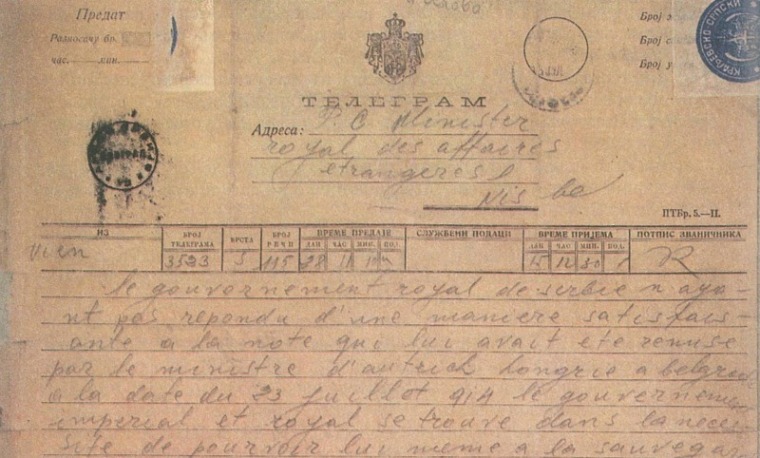 Предат
Разносачу бр.
час. мин.
Број
Број
Број
КРАЉЕВСКО СРПСКИ
ТЕЛЕГРАМ
Адреса: P. C. Minister
royal des affaires
etrangeres
Nis be
ПТБр. 5.—II.
ИЗ БРОЈ ТЕЛЕГРАМА ВРСТА БРОЈ РЕЧИ ВРЕМЕ ПРЕДАЈЕ СЛУЖБЕНИ ПОДАЦИ ВРЕМЕ ПРИЈЕМА ПОТПИС ЗВАНИЧНИКА
ДАН ЧАС МИН. ПОД. ДАН ЧАС МИН. ПОД.
Vien 3523 5 115 28 11 10 15 12 30 R
le gouvernement royal de serbie n aya-
nt pas repondu d'une maniere satisfais-
ante a la note qui lui avait ete remise
par le ministre d'autrich hongrie a belgrade
a la date du 23 juillet 914 le gouverneme
imperial et royal se trouve dans la neces
site de pourvoir lui meme a la sauvegar